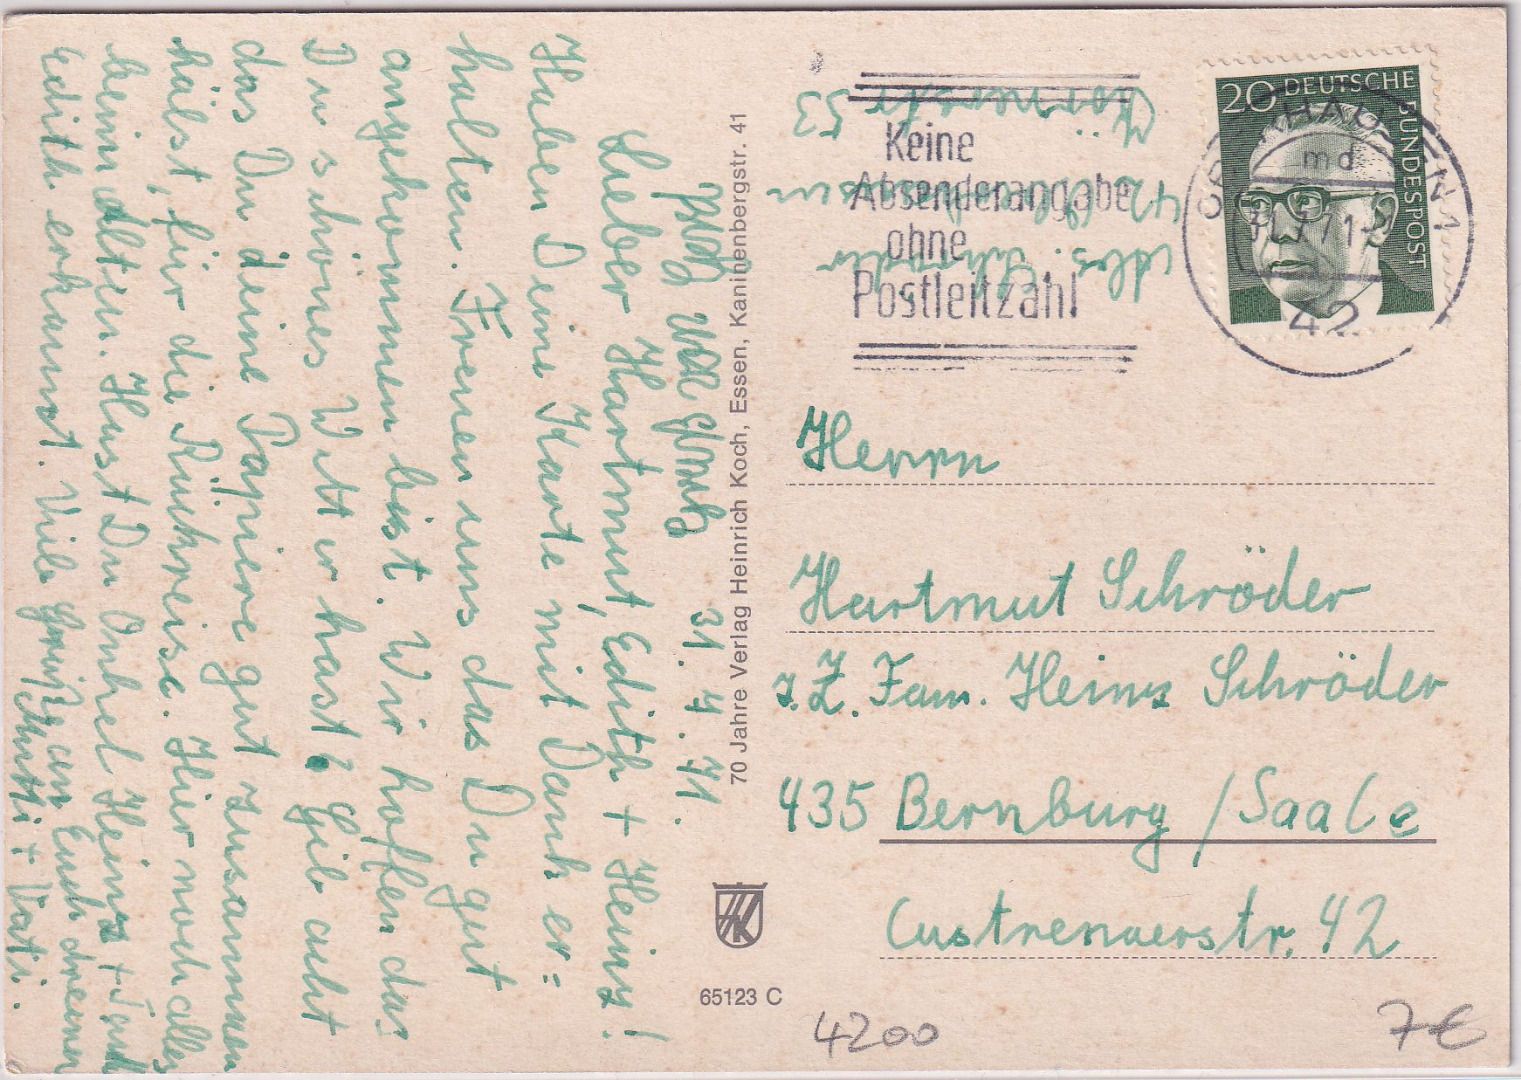 31.4.71.
Lieber Hartmut, Edith + Heinz!
Haben Deine Karte mit Dank er=
halten. Freuen uns das Du gut
angekommen bist. Wir hoffen das
Du schönes Wetter hast? Gib acht
das Du deine Papiere gut zusammen
hälst, für die Rückreise. Hier noch alles
beim alten. Hast Du Onkel Heinz + Tant
Edith erkannt. Viele Grüße an Euch dreien
Mutti + Vati.
70 Jahre Verlag Heinrich Koch, Essen, Kaninenbergstr. 41
HK
65123 C
Abs. Schröder
42 Oberhausen
Körnerstr 53
Keine
Absenderangabe
ohne
Postleitzahl
20 DEUTSCHE BUNDESPOST
OBERHAUSEN 1
md
42
Herrn
Hartmut Schröder
z.Z. Fam. Heinz Schröder
435 Bernburg /Saale
Custrenaerstr. 42
4200
7€